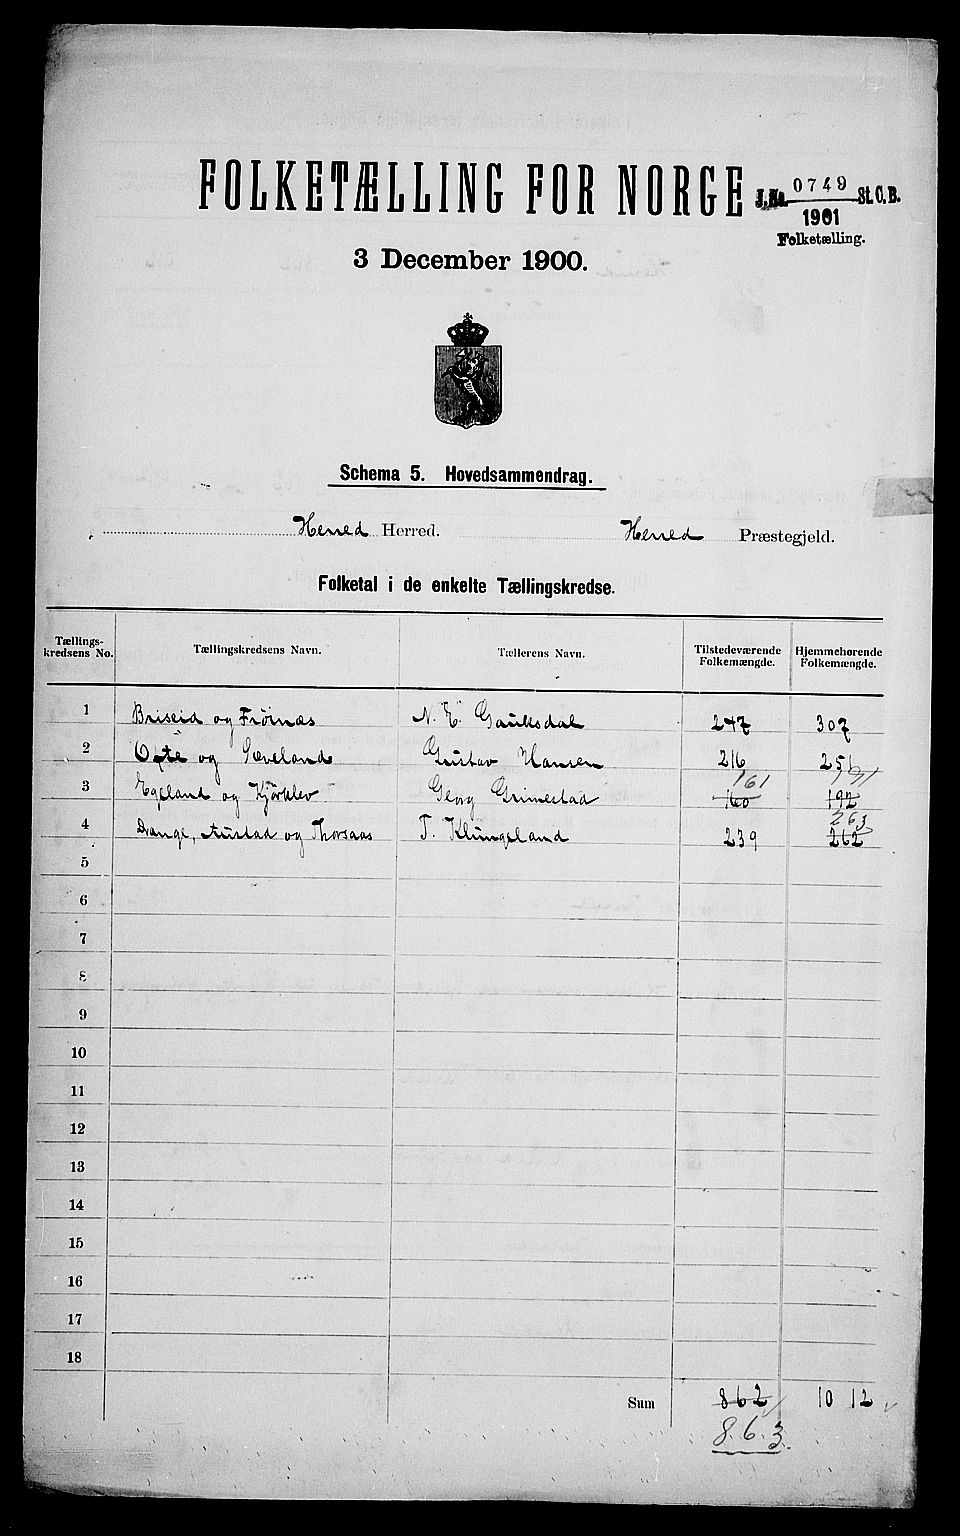 FOLKETÆLLING FOR NORGE
J.No. 0749 St.C.B.
1901
Folketælling.
3 December 1900.
Schema 5. Hovedsammendrag.
Herred Herred. Herred Præstegjeld.
Folketal i de enkelte Tællingskredse.
Tællingskredsens No. Tællingskredsens Navn. Tællerens Navn. Tilstedeværende Folkemængde. Hjemmehørende Folkemængde.
1 Briseid og Frøinæs N. E. Gauksdal 247 307
2 Ofte og Sæveland Gustav Hansen 216 251
161 191
3 Egeland og Kjørklev Georg Grimestad 160 192
263
4 Drange, Austad og Thorsaas T. Klungeland 239 262
5
6
7
8
9
10
11
12
13
14
15
16
17
18
Sum 862 1012
8.6.3.